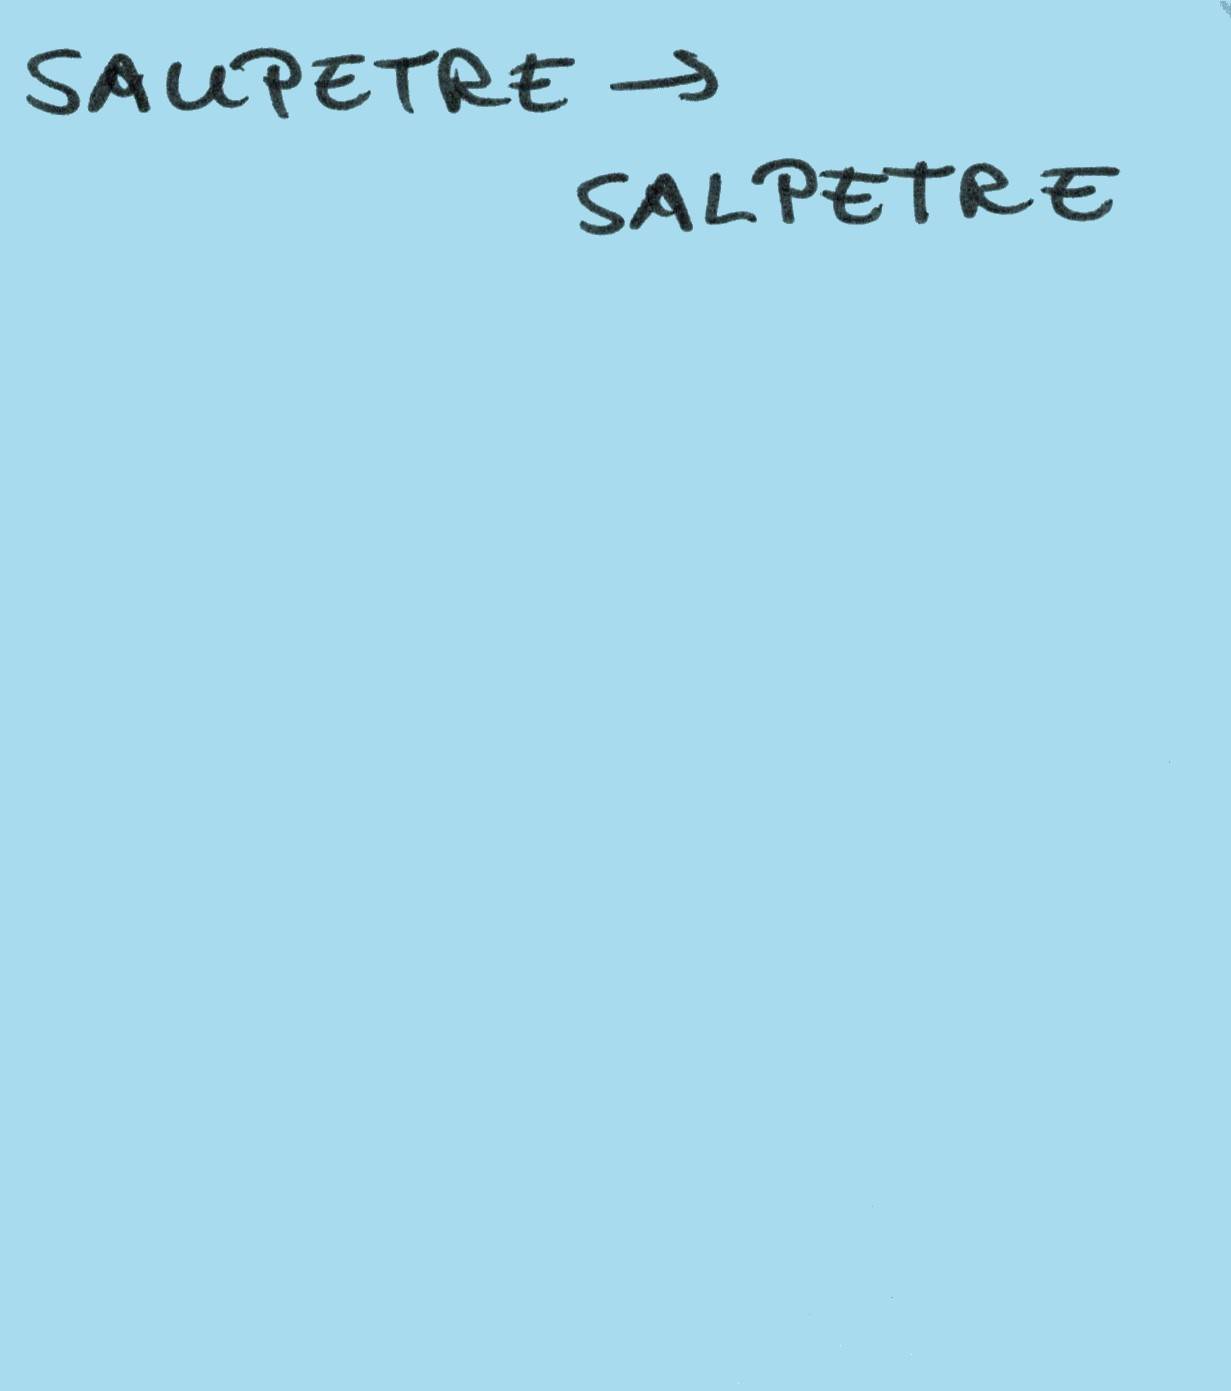 SAUPETRE →
SALPETRE